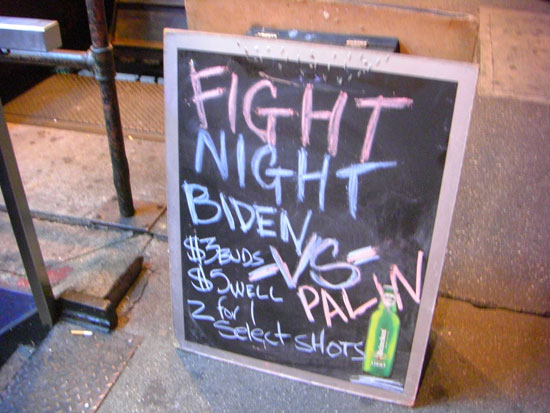 FIGHT
NIGHT
BIDEN
-VS-
PALIN
$3 BUDS
$5 WELL
2 for 1
Select SHOTS
Heineken